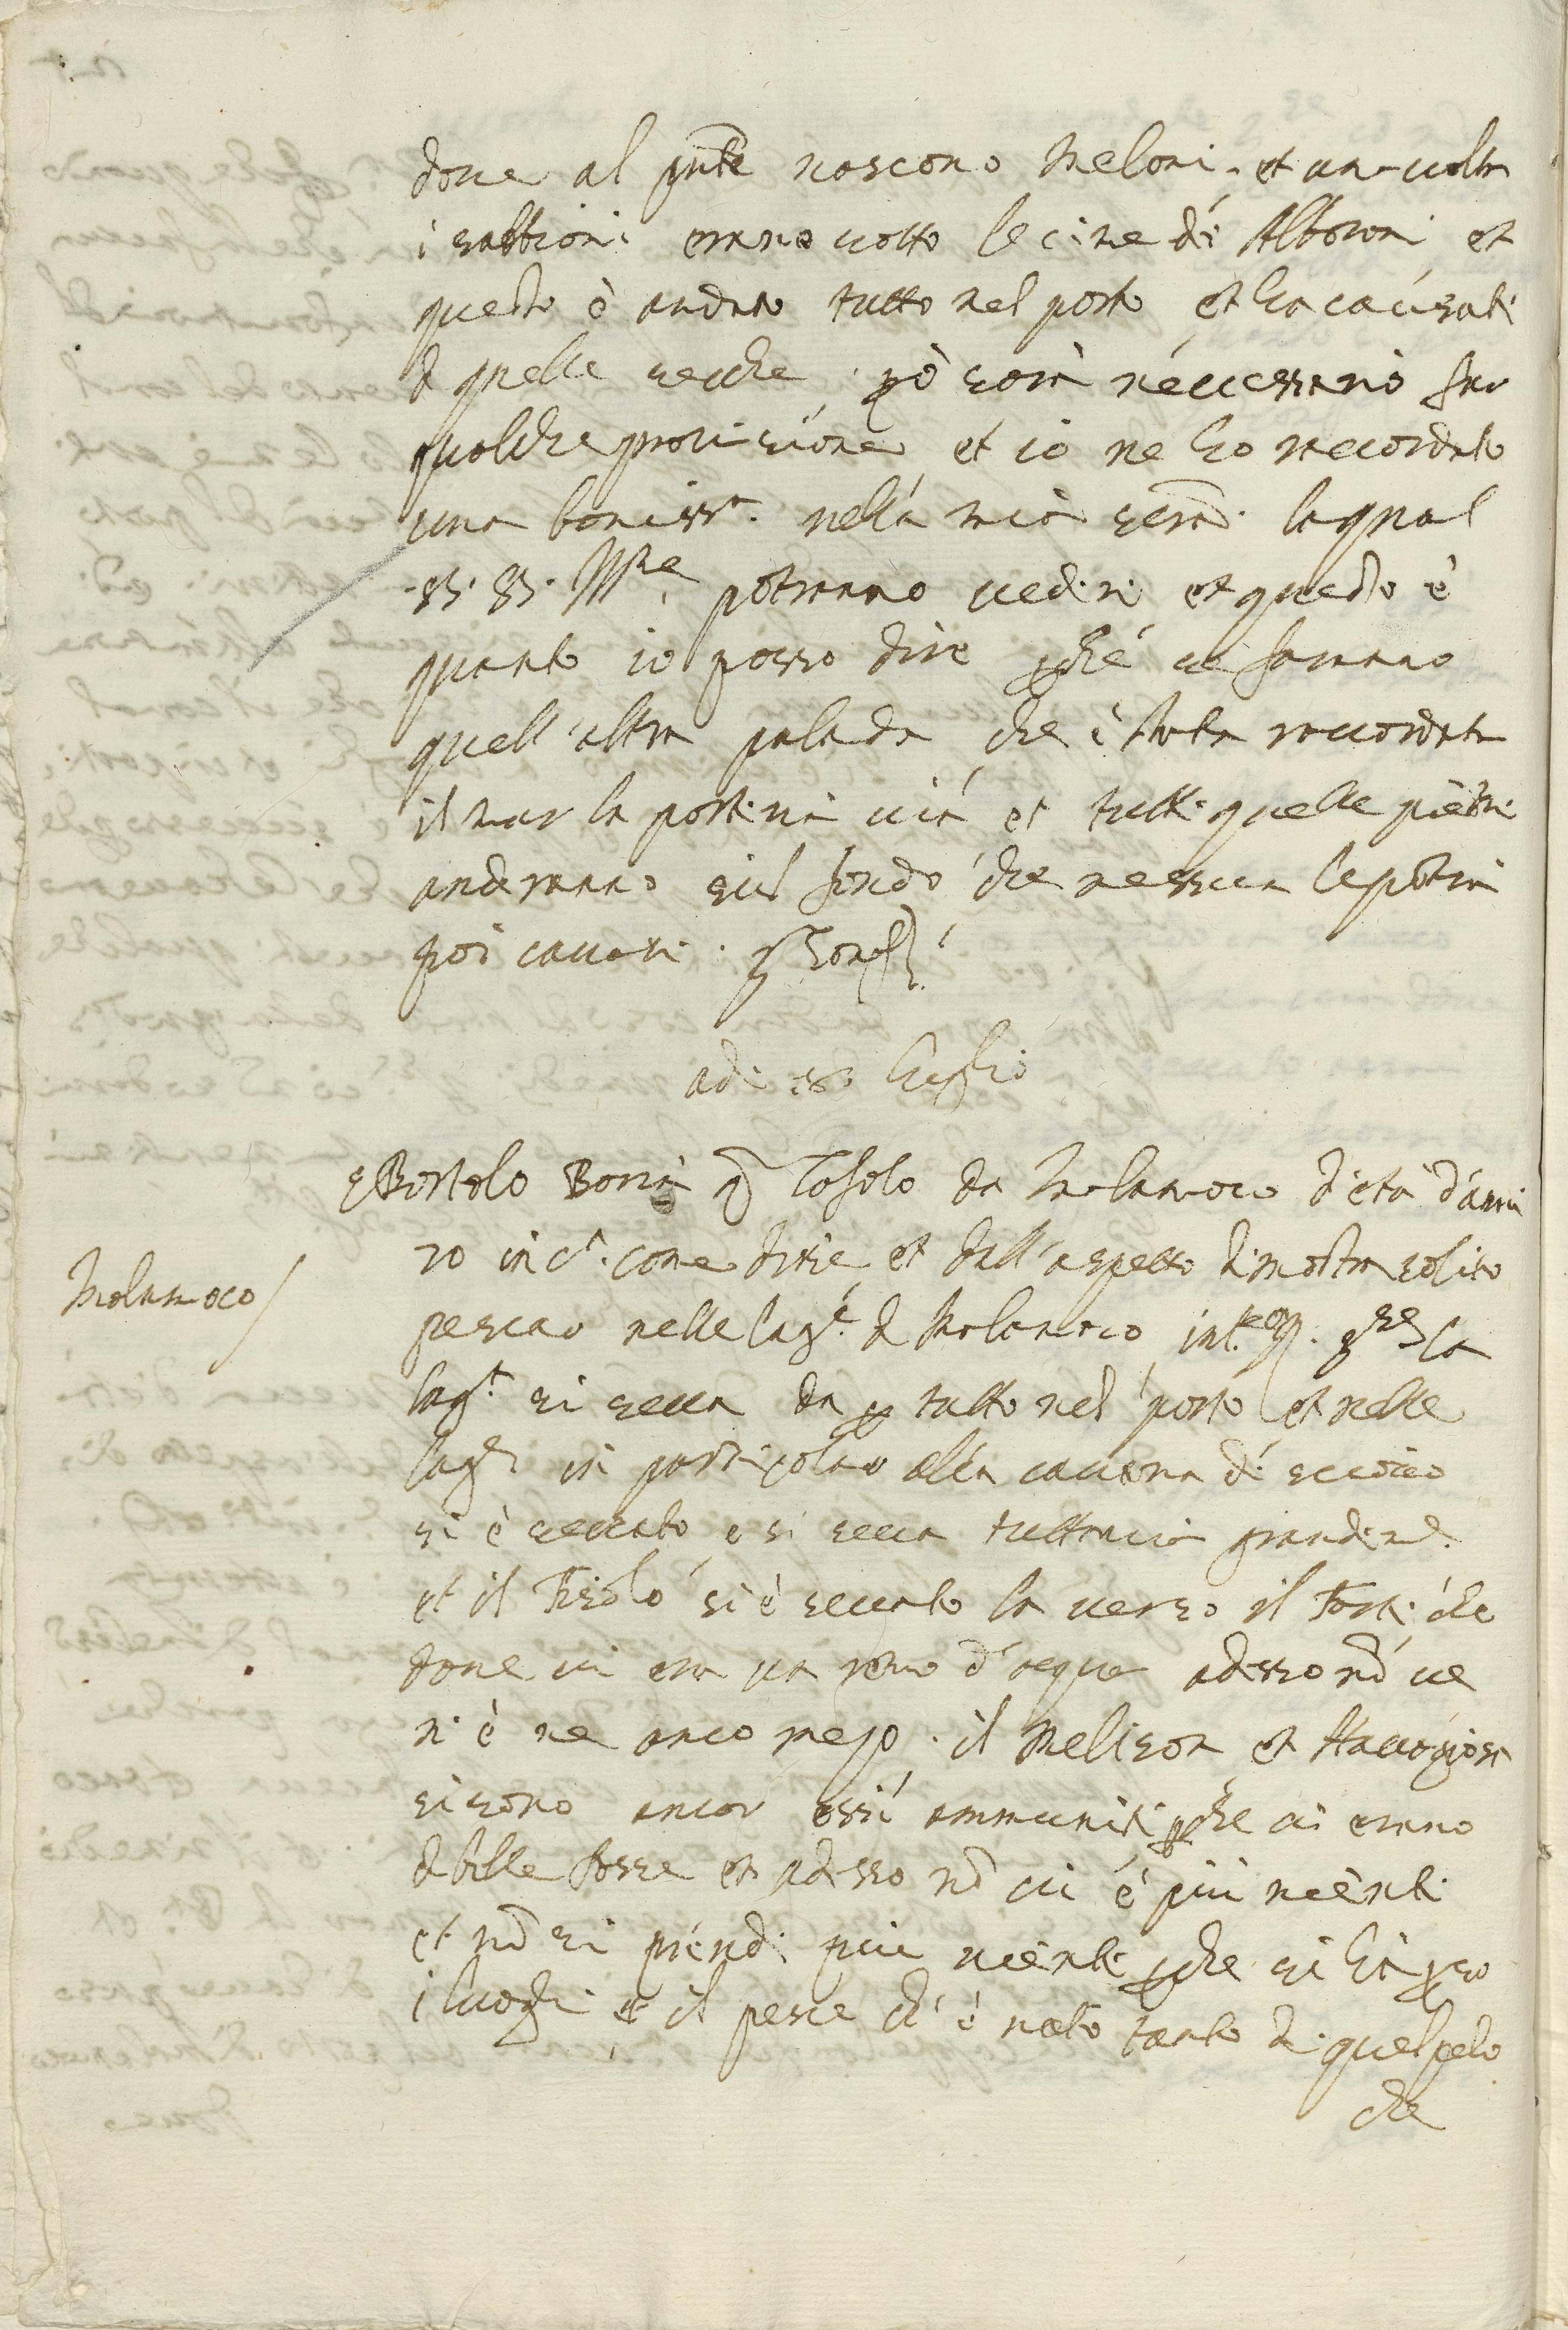 doue al pnte nascono meloni. et una uolta
i sabbioni erano sotto le cime di Alboroni et
questo è andato tutto nel porto et ha causati
di quelle secche, però sarà neccessario far
qualche prouisione, et io ne ho racordato
una boniss.a nella mia scrã. la qual
SS. SS. Ill.me potranno uedere et questo è
quanto io posso dire perche se faranno
quell'altra palada che è stata raccordata
il mar la porterà uia et tutte quelle piere
anderanno sul fondo che nessun le potrà
poi cauare.
adi luglio
Bortolo da Malamoco d'età d'anni
70 in c.a come disse et dall'aspetto dimostra solito
Malamoco
pescar nelle lag.e di Malamoco int.o la
lag.a si secca da per tutto nel porto et nelle
lag.e in particolar alla cauana di
si è seccato e si secca tuttauia grandem.e
et il Fisolo si è seccato la uerso il Forte che
doue ui era un remo d'acqua adesso nõ ue
n'è ne anco mezo. il Melison et
si sono ancor essi ammuniti perche ui erano
di belle fosse et adesso nõ ui è più niente
et nõ si prende più niente perche si ha perso
i luoghi et il pesce ch'è nato tanto di quel pelo
che